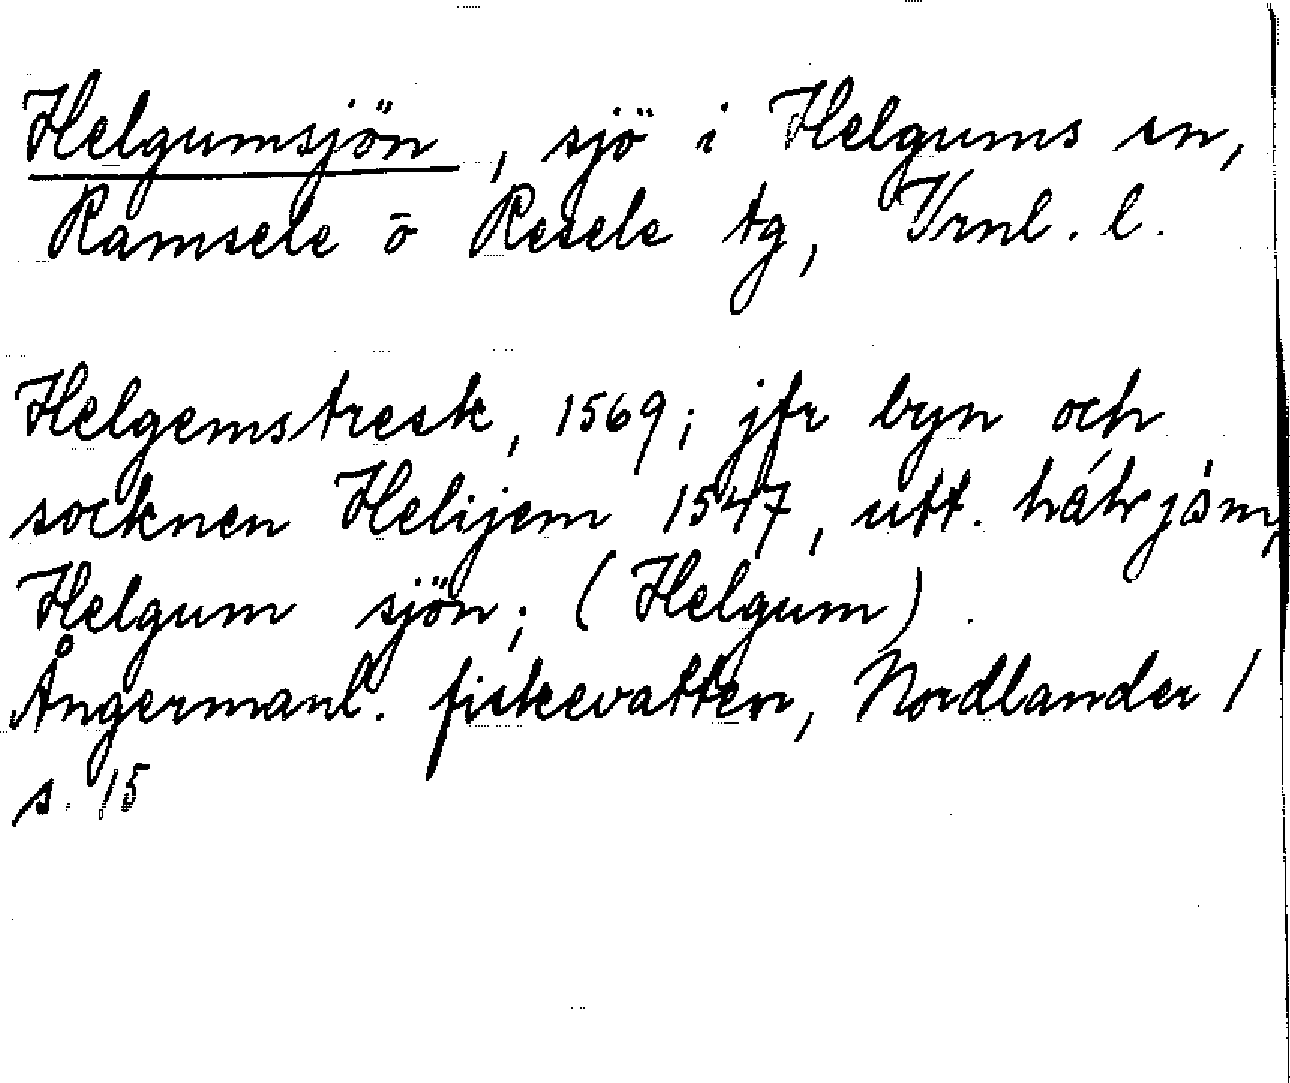 Helgumsjön, sjö i Helgums sn,
Ramsele o Resele tg, Vrnl. l.
Helgemstresk, 1569; jfr byn och
socknen Helijem 1547, utt.
Helgum sjön; (Helgum).
Ångermanl. fiskevatten, Nordlander 1
s. 15